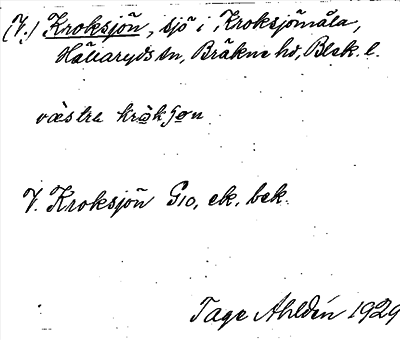 (V.) Kroksjön, sjö i Kroksjömåla,
Hällaryds sn, Bräkne hd, Blek. l.
västra krökʃøn
V. Kroksjön G10, ek. bek.
Tage Ahldén 1929